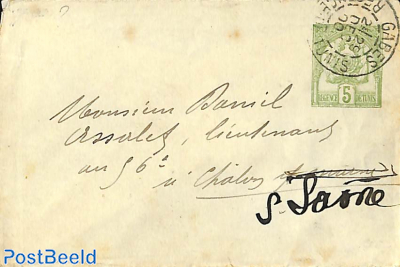 GABES
REGENCE TUNIS
REGENCE DE TUNIS
5
Monsieur Daniel
Assolet, lieutenant
au 56e
à Chalon
s. Saone
PostBeeld